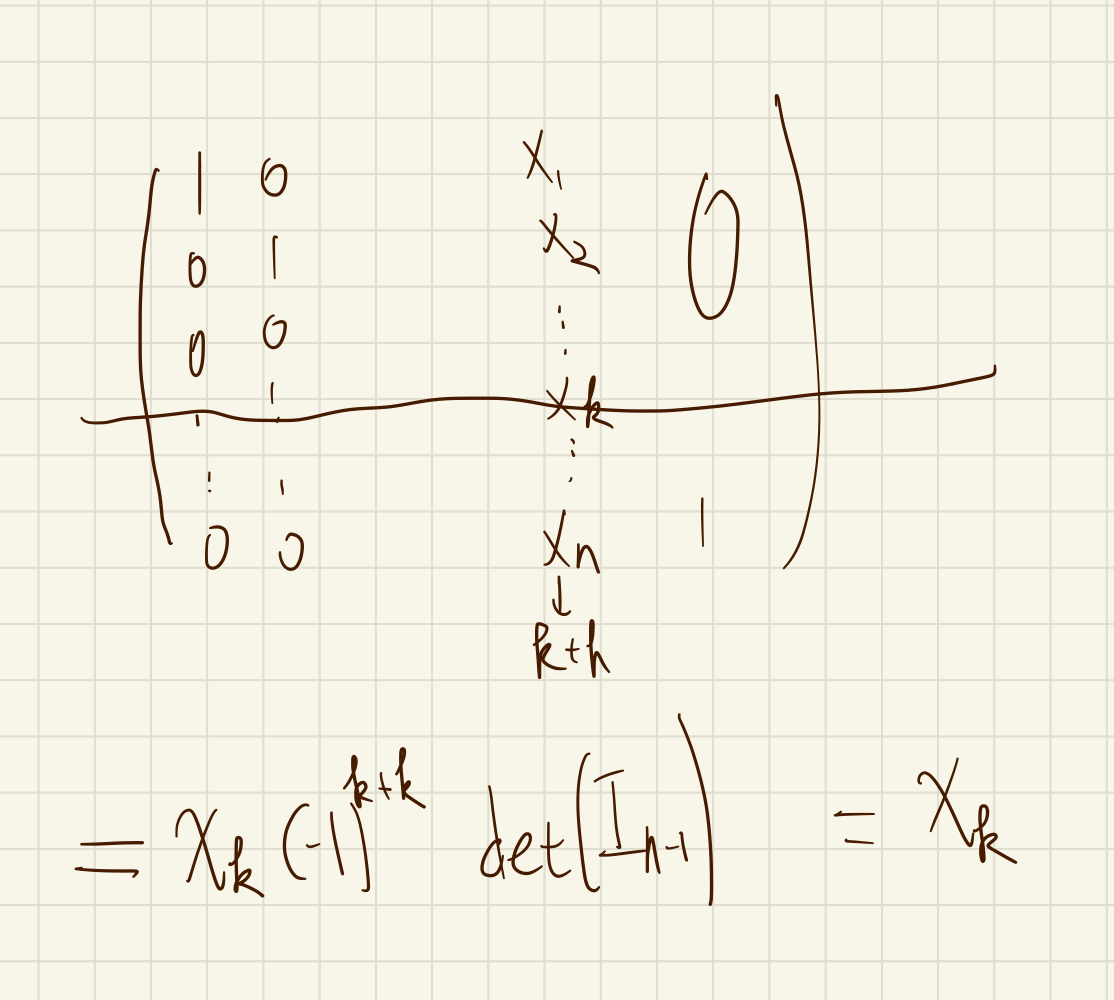 1 0 x₁ 0
0 1 x₂
0 0 ⋮
⋮ ⋮ xk
⋮ ⋮ ⋮
0 0 xn 1
↓
k+h
= xk (-1)^{k+k} det(I_{n-1}) = xk